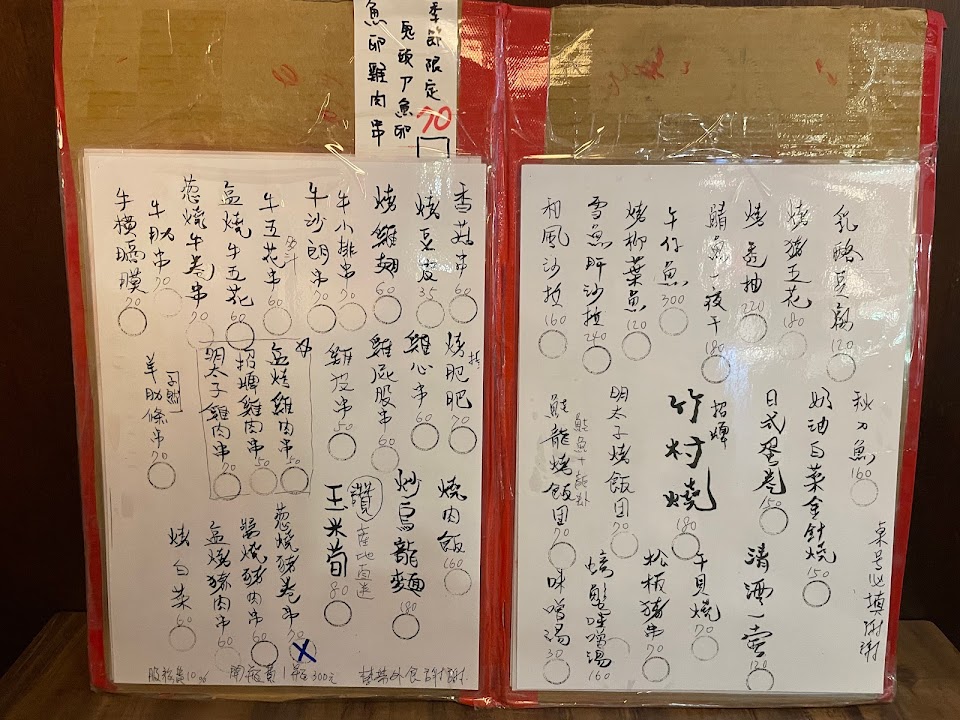 季節限定 70
鬼頭刀魚卵
魚卵雞肉串
香菇串 60
烤豆皮 35
烤雞翅 60
牛小排串 70
牛沙朗串 70
牛五花串 60
盐燒牛五花 60
葱燒牛卷串 70
牛肋串 70
牛橫膈膜 70
烤肥肥 70
雞心串 60
雞屁股串 60
雞皮串 50
盐烤雞肉串 50
招牌雞肉串 50
明太子雞肉串 70
羊肋條串 70
燒肉飯 160
炒烏龍麵 180
讚 產地直送
玉米荀 80
葱燒豬卷串 70
醬燒豬肉串 60
盐烤豬肉串 60
烤白菜 60
服務費10% 開瓶費1瓶300元 禁帶外食 謝謝
乳酪豆腐 120
烤豬五花 180
烤透抽 220
鯖魚一夜干 180
午仔魚 300
烤柳葉魚 120
雪魚肝沙拉 240
和風沙拉 160
秋刀魚 160
奶油白菜金針燒 150
日式蛋卷 150
招牌
竹村燒 180
明太子烤飯团 70
鮭龍烤飯团 70
桌号必填謝謝
清酒一壺 120
干貝燒 70
松板豬串 70
螃蟹味噌湯 160
味噌湯 30